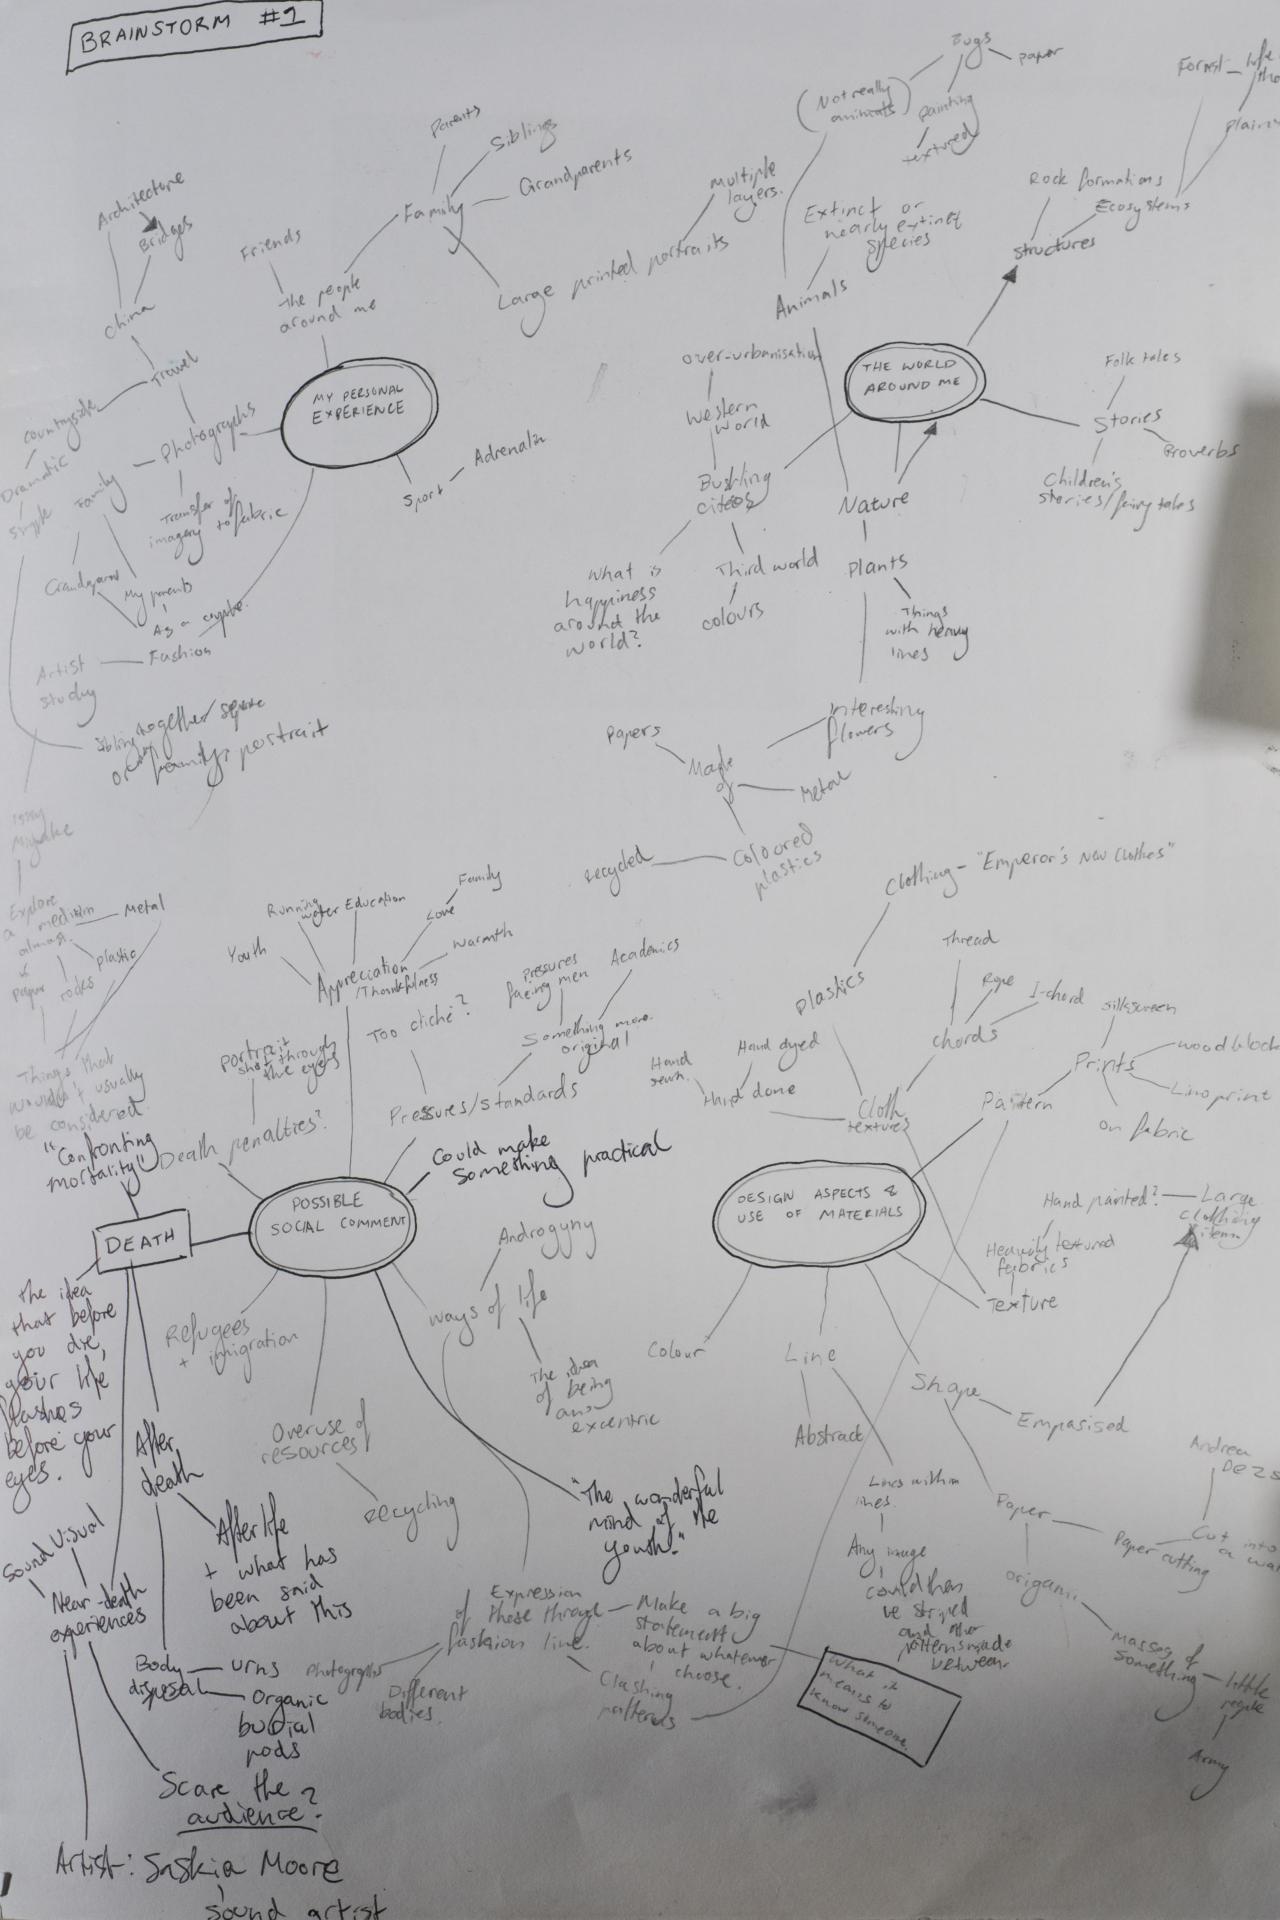 BRAINSTORM #1
Parents
Siblings
Grandparents
Family
Large printed portraits
Multiple
layers.
Friends
The people
around me
Architecture
Bridges
China
Travel
countryside
Dramatic
simple
Photographs
Family
Transfer of
imagery to fabric
MY PERSONAL
EXPERIENCE
Sport
Adrenalin
My parents
As a couple.
Fashion
Artist
study
together
or family portrait
Bugs
paper
painting
textured
(Not really
animals)
Extinct or
nearly extinct
species
Animals
Rock formations
Ecosystems
structures
Forest
THE WORLD
AROUND ME
Folk tales
Stories
Proverbs
Children's
stories/fairy tales
over-urbanisation
Western
world
Bustling
Third world
colours
What is
happiness
around the
world?
Nature
Plants
Things
with heavy
lines
interesting
flowers
Made
of
Papers
Metal
Coloured
plastics
recycled
Miyake
Explore
a medium
Metal
plastic
rocks
Things that
wouldn't usually
be considered.
"Confronting
mortality"
Running
water
Education
Family
Love
Warmth
Youth
Appreciation
/Thankfulness
Too cliché?
Pressures
facing men
Academics
Something more
original
Pressures/standards
portrait
shot through
the eyes
Death penalties?
Could make
something practical
POSSIBLE
SOCIAL COMMENT
DEATH
Clothing - "Emperor's New Clothes"
plastics
Thread
Rope
I-chord
chords
Hand
sewn.
Hand dyed
Hand done
Cloth
textures
silkscreen
woodblock
Linoprint
on fabric
Prints
Pattern
DESIGN ASPECTS &
USE OF MATERIALS
Hand painted?
Large
clothing
item
Heavily textured
fabrics
Texture
Colour
Line
Abstract
Lines within
lines.
Any image
could then
be striped
and other
patterns made
between.
Shape
Empasised
Paper
origami
Paper cutting
Cut into
Andrea
Masses of
something
little
people
Army
Androgyny
Ways of life
The idea
of being
excentric
Refugees
+ imigration
Overuse of
resources
recycling
"The wonderful
mind of the
youth."
Expression
of these through
fashion line.
Make a big
statement
about whatever
I choose.
What it
means to
know someone.
Clashing
patterns
Photographs
Different
bodies.
The idea
that before
you die,
your life
flashes
before your
eyes.
After
death
Afterlife
+ what has
been said
about this
Sound
Visual
Near-death
experiences
Body
disposal
urns
Organic
burial
pods
Scare the
audience?
Artist: Saskia Moore
sound artist